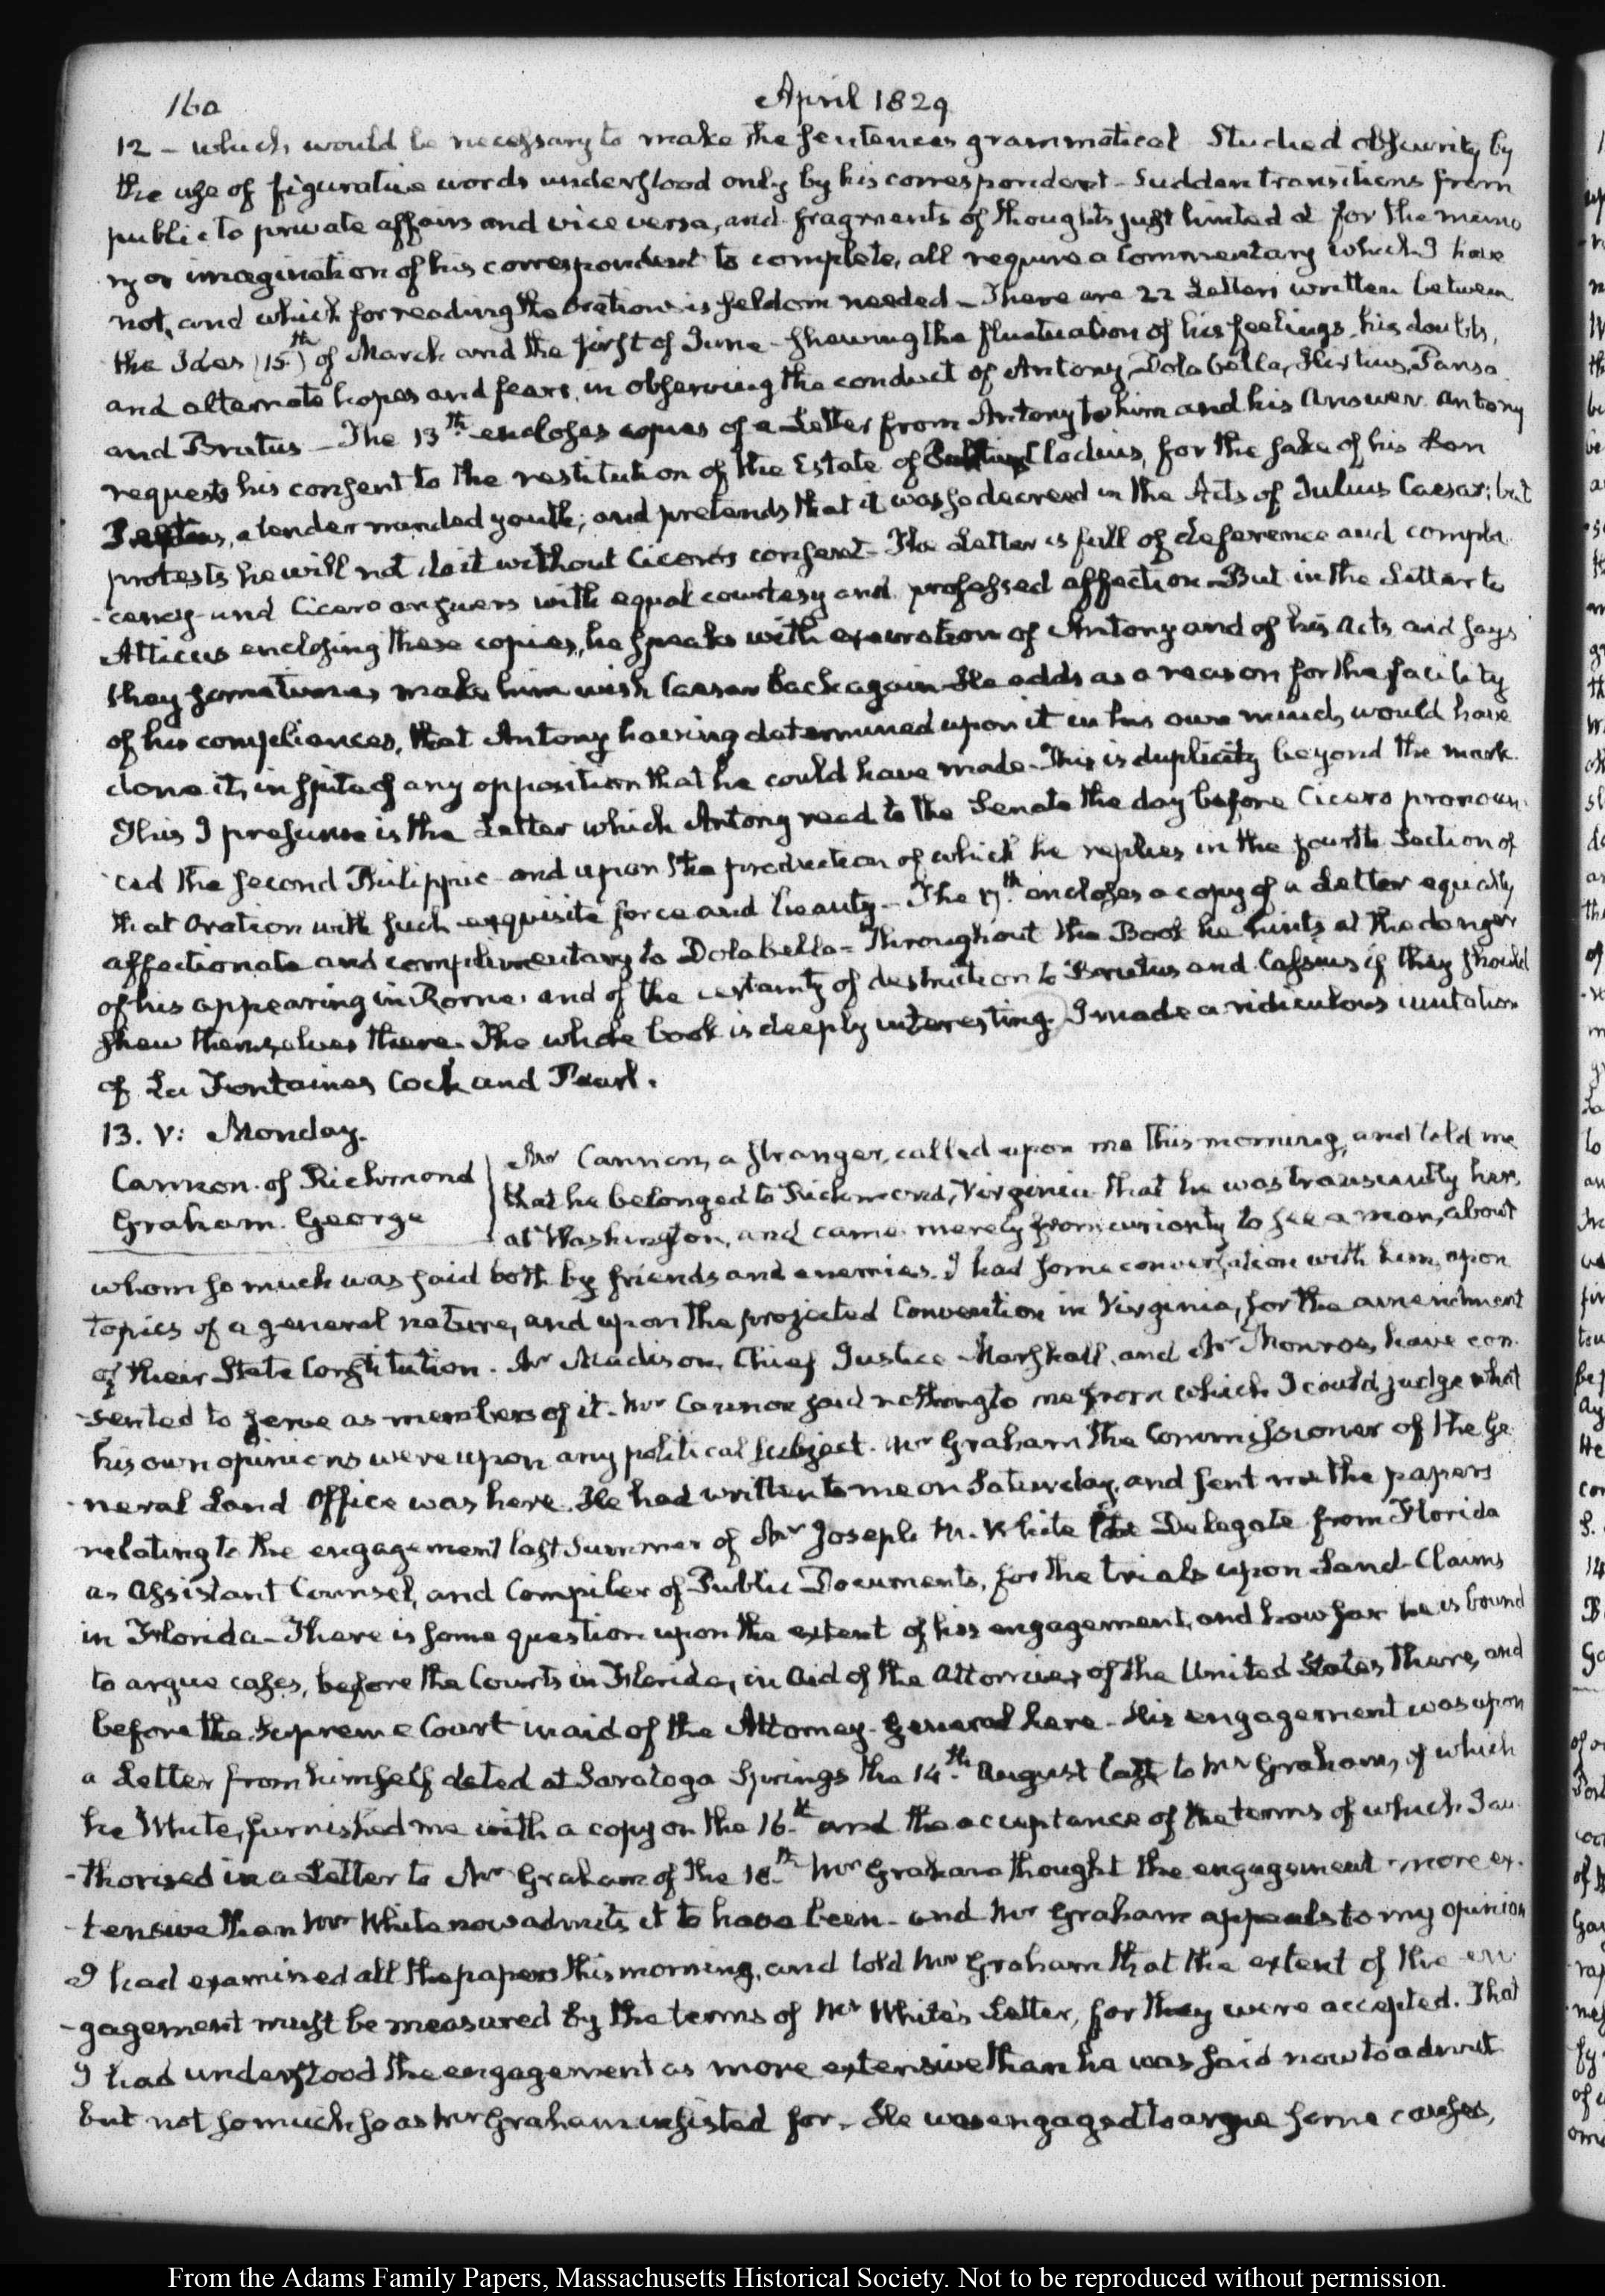 160
April 1829
12 – which would be necessary to make the sentences grammatical Studied obscurity by
the use of figurative words understood only by his correspondent – Sudden transitions from
public to private affairs and vice versa, and fragments of thoughts just hinted at for the memo
ry or imagination of his correspondent to complete, all require a Commentary which I have
not, and which for reading the Orations is seldom needed – There are 22 Letters written between
the Ides (15.th) of March and the first of June – shewing the fluctuation of his feelings, his doubts,
and alternate hopes and fears, in observing the conduct of Antony, Dolabella, Hirtius, Pansa
and Brutus – The 13th encloses copies of a Letter from Antony to him and his Answer. Antony
requests his consent to the restitution of the Estate of Clodius, for the sake of his son
a tender minded youth; and pretends that it was so decreed in the Acts of Julius Caesar; but
protests he will not do it without Cicero's consent – The Letter is full of deference and compla
-cency and Cicero answers with equal courtesy and professed affection – But in the Letter to
Atticus enclosing these copies, he speaks with execration of Antony and of his Acts, and says
they sometimes make him wish Caesar back again – He adds as a reason for the facility
of his compliances, that Antony having determined upon it in his own mind, would have
done it, in spite of any opposition that he could have made – This is duplicity beyond the mark.
This I presume is the Letter which Antony read to the Senate the day before Cicero pronoun-
-ced the second Philippic – and upon the production of which he replies in the fourth Section of
that Oration with such exquisite force and beauty – The 17th encloses a copy of a Letter equally
affectionate and complimentary to Dolabella – Throughout the Book he hints at the danger
of his appearing in Rome, and of the certainty of destruction to Brutus and Cassius if they should
shew themselves there. The whole book is deeply interesting. I made a ridiculous imitation
of La Fontaines Cock and Pearl.
13. V: Monday.
Cannon. of Richmond
Graham. George
Mr Cannon, a stranger, called upon me this morning, and told me
that he belonged to Richmond, Virginia that he was transiently here
at Washington, and came merely from curiosity to see a man, about
whom so much was said both by friends and enemies. I had some conversation with him, upon
topics of a general nature, and upon the projected Convention in Virginia, for the amendment
of their State Constitution. Mr Madison, Chief Justice Marshall, and Mr Monroe, have con
-sented to serve as members of it. Mr Cannon said nothing to me from which I could judge what
his own opinions were upon any political subject. Mr Graham the Commissioner of the Ge
-neral Land Office was here. He had written to me on Saturday, and sent me the papers
relating to the engagement last Summer of Mr Joseph M. White the Delegate from Florida
as Assistant Counsel, and Compiler of Public Documents, for the trials upon Land Claims
in Florida – There is some question upon the extent of his engagement, and how far he is bound
to argue cases, before the Courts in Florida, in aid of the Attornies of the United States there, and
before the Supreme Court in aid of the Attorney-General here – His engagement was upon
a Letter from himself dated at Saratoga Springs the 14th August last to Mr Graham, of which
he White, furnished me with a copy on the 16th and the acceptance of the terms of which I au
-thorised in a Letter to Mr Graham of the 18th Mr Graham thought the engagement more ex-
-tensive than Mr White now admits it to have been – and Mr Graham appeals to my opinion
I had examined all the papers this morning, and told Mr Graham that the extent of the en
-gagement must be measured by the terms of Mr White's Letter, for they were accepted. That
I had understood the engagement as more extensive than he was said now to admit
but not so much so as Mr Graham insisted for. He was engaged to argue some causes,
From the Adams Family Papers, Massachusetts Historical Society. Not to be reproduced without permission.